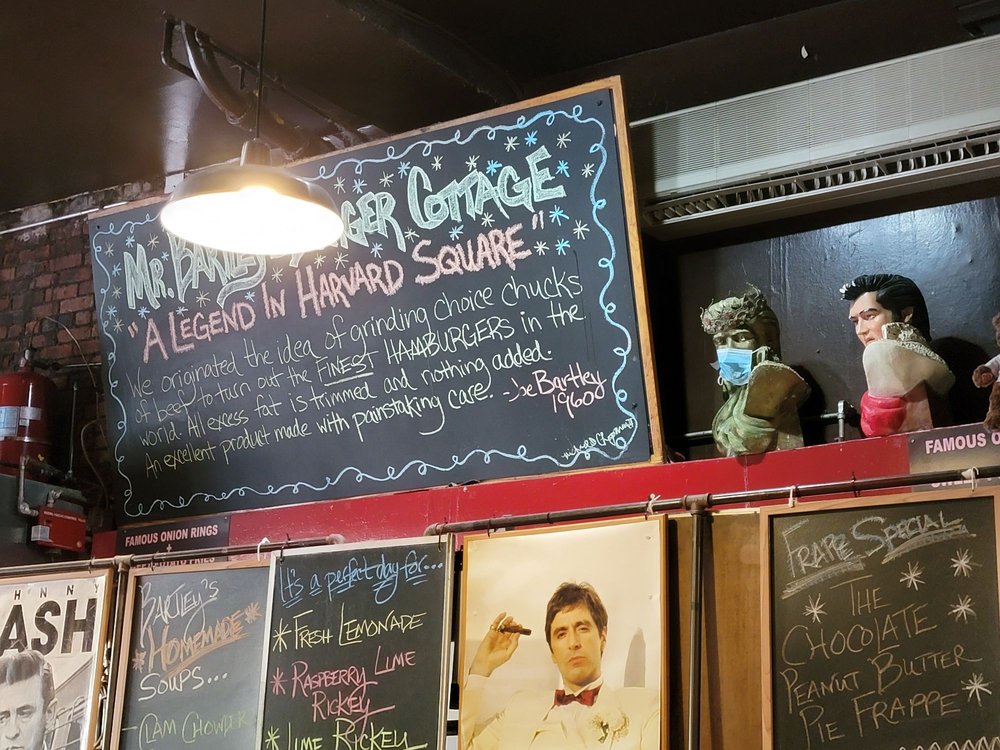 MR. BARTLEY'S BURGER COTTAGE
"A LEGEND IN HARVARD SQUARE"
We originated the idea of grinding choice chucks
of beef to turn out the FINEST HAMBURGERS in the
world. All excess fat is trimmed and nothing added.
An excellent product made with painstaking care. -Joe Bartley
1960
FAMOUS ONION RINGS
FAMOUS O
ASH
BARTLEY'S
*HOMEMADE*
SOUPS...
-CLAM CHOWDER
It's a perfect day for...
* FRESH LEMONADE
* RASPBERRY LIME
RICKEY
* LIME RICKEY
FRAPPE SPECIAL
THE
CHOCOLATE
PEANUT BUTTER
PIE FRAPPE